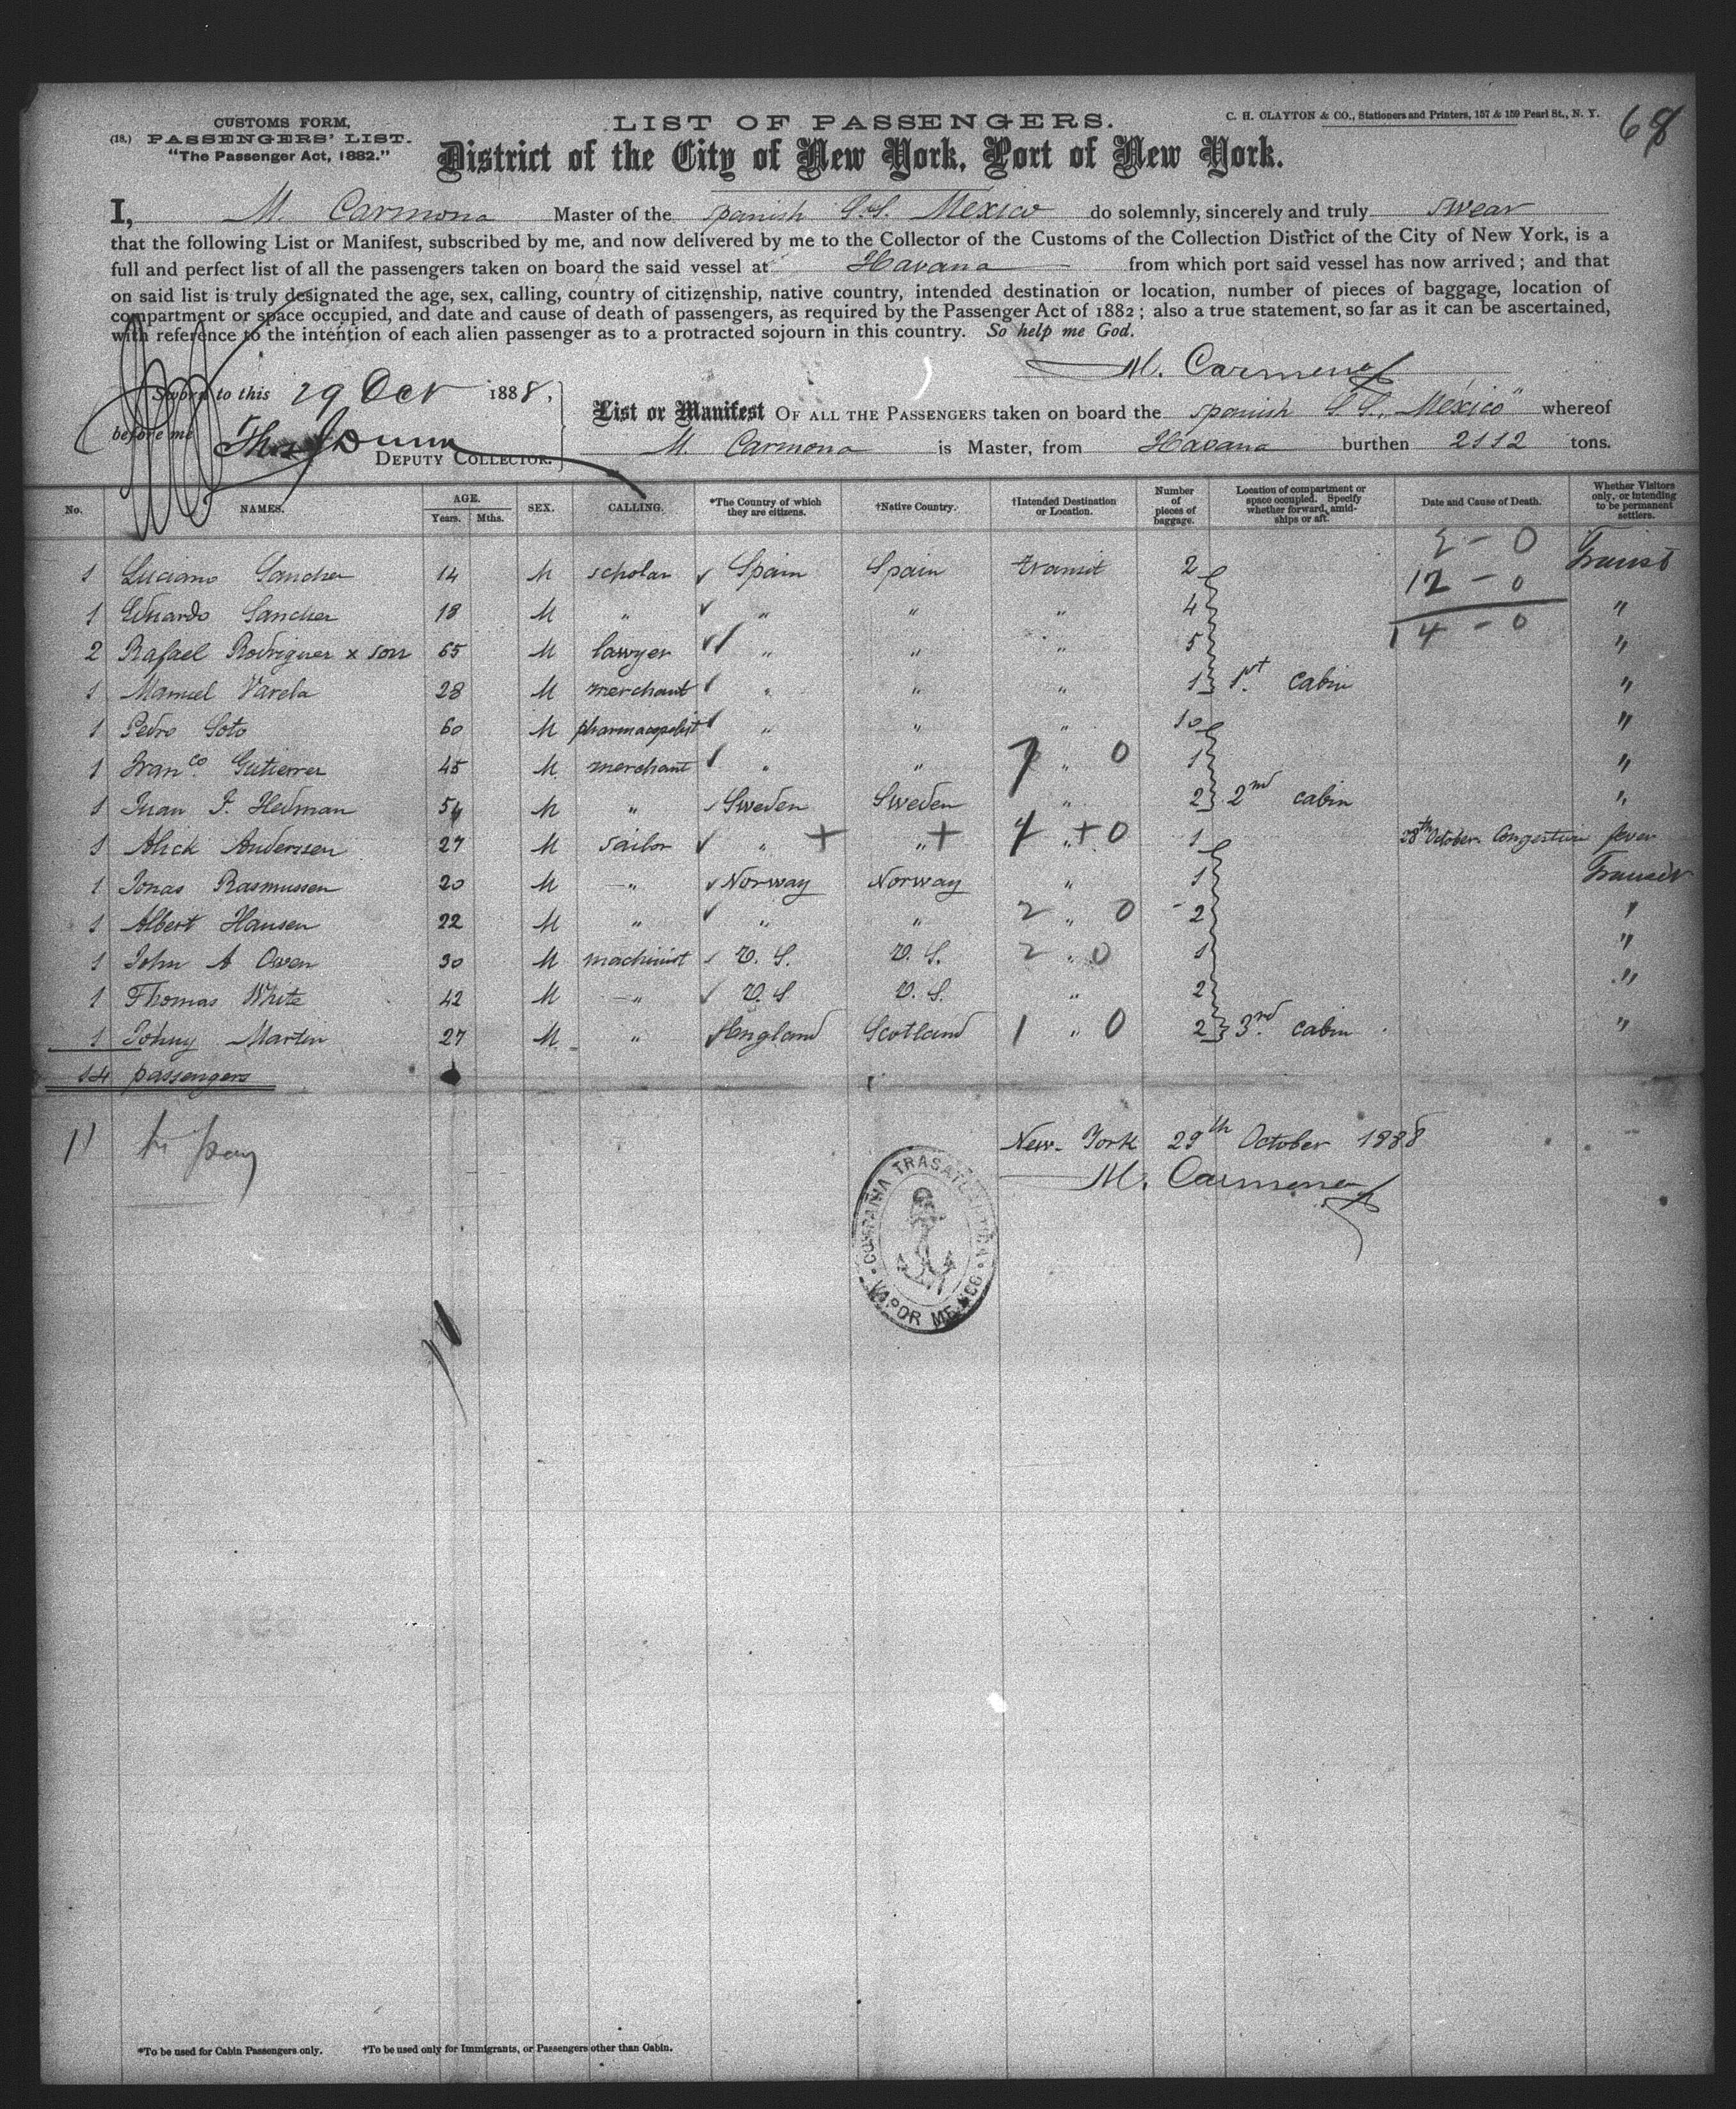 CUSTOMS FORM,
(18.) PASSENGERS' LIST.
"The Passenger Act, 1882."
LIST OF PASSENGERS.
C. H. CLAYTON & CO., Stationers and Printers, 157 & 159 Pearl St., N. Y.
68
District of the City of New York, Port of New York.
I, M. Carmona Master of the spanish S.S. Mexico do solemnly, sincerely and truly swear
that the following List or Manifest, subscribed by me, and now delivered by me to the Collector of the Customs of the Collection District of the City of New York, is a
full and perfect list of all the passengers taken on board the said vessel at Havana from which port said vessel has now arrived; and that
on said list is truly designated the age, sex, calling, country of citizenship, native country, intended destination or location, number of pieces of baggage, location of
compartment or space occupied, and date and cause of death of passengers, as required by the Passenger Act of 1882; also a true statement, so far as it can be ascertained,
with reference to the intention of each alien passenger as to a protracted sojourn in this country. So help me God.
M. Carmona
Sworn to this 29 Oct 1888,
before me Thos Dunn
DEPUTY COLLECTOR.
List or Manifest OF ALL THE PASSENGERS taken on board the spanish S.S. "Mexico" whereof
M. Carmona is Master, from Havana burthen 2112 tons.
No. NAMES. AGE. Years. Mths. SEX. CALLING. *The Country of which they are citizens. †Native Country. †Intended Destination or Location. Number of pieces of baggage. Location of compartment or space occupied. Specify whether forward, amidships or aft. Date and Cause of Death. Whether Visitors only, or intending to be permanent settlers.
2 - 0
1 Luciano Sanchez 14 M scholar Spain Spain transit 2 Transit
12 - 0
1 Eduardo Sanchez 18 M " " " " 4 "
14 - 0
2 Rafael Rodriguez x son 65 M lawyer " " " 5 "
1 Manuel Varela 28 M merchant " " " 1 1st cabin "
1 Pedro Soto 60 M pharmacopolist " " " 10 "
1 Franco. Gutierrez 45 M merchant " " 7 " 0 1 "
1 Juan F. Hedman 54 M " Sweden Sweden " 2 2nd cabin "
1 Alick Anderssen 27 M sailor " + " + 4 " + 0 1 28th October Congestive fever
1 Jonas Rasmussen 20 M " Norway Norway " 1 Transit
1 Albert Hansen 22 M " " " 2 " 0 2 "
1 John A Owen 30 M machinist U. S. U. S. 2 " 0 1 "
1 Thomas White 42 M " U. S U. S. " 2 "
1 Johny Martin 27 M " England Scotland 1 " 0 2 3rd cabin "
14 passengers
11 to pay
New-York 29th October 1888
M. Carmona
COMPAÑIA TRASATLANTICA
VAPOR MEXICO
*To be used for Cabin Passengers only. †To be used only for Immigrants, or Passengers other than Cabin.